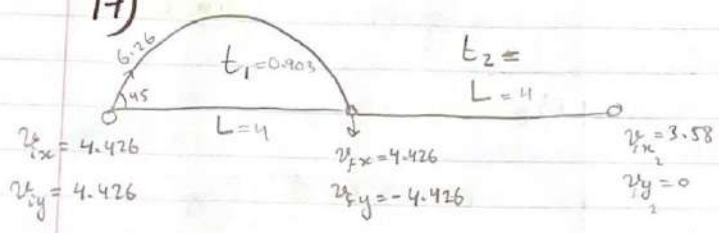 17)
6.26
45
t₁=0.903
L=4
t₂ =
L=4
v_ix = 4.426
v_iy = 4.426
v_fx = 4.426
v_fy = -4.426
v_ix₂ = 3.58
v_iy₂ = 0